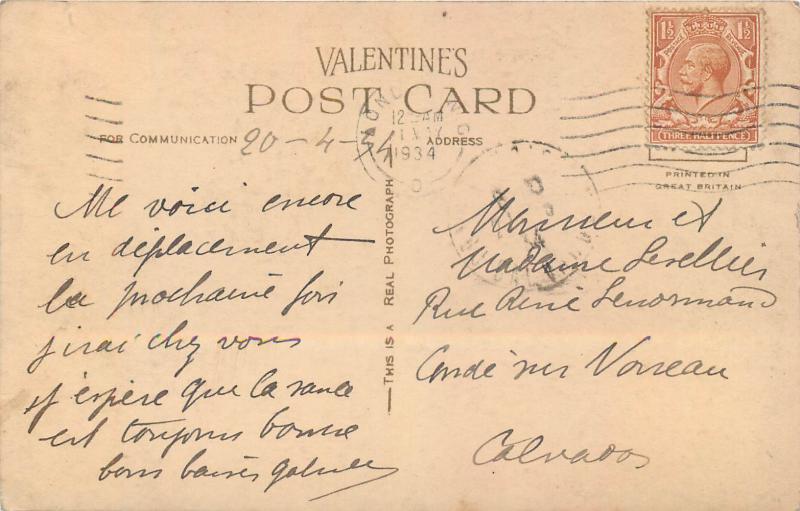 VALENTINE'S
POST CARD
FOR COMMUNICATION
ADDRESS
20-4-34
12 AM
1 MY
1934
1½ 1½
THREE HALFPENCE
PRINTED IN
GREAT BRITAIN
THIS IS A REAL PHOTOGRAPH
Me voici encore
en déplacement
la prochaine fois
j'irai chez vous
j'espère que la santé
est toujours bonne
bons baisers
Monsieur et
Madame Lesellier
Rue René Lenormand
Condé sur Noireau
Calvados